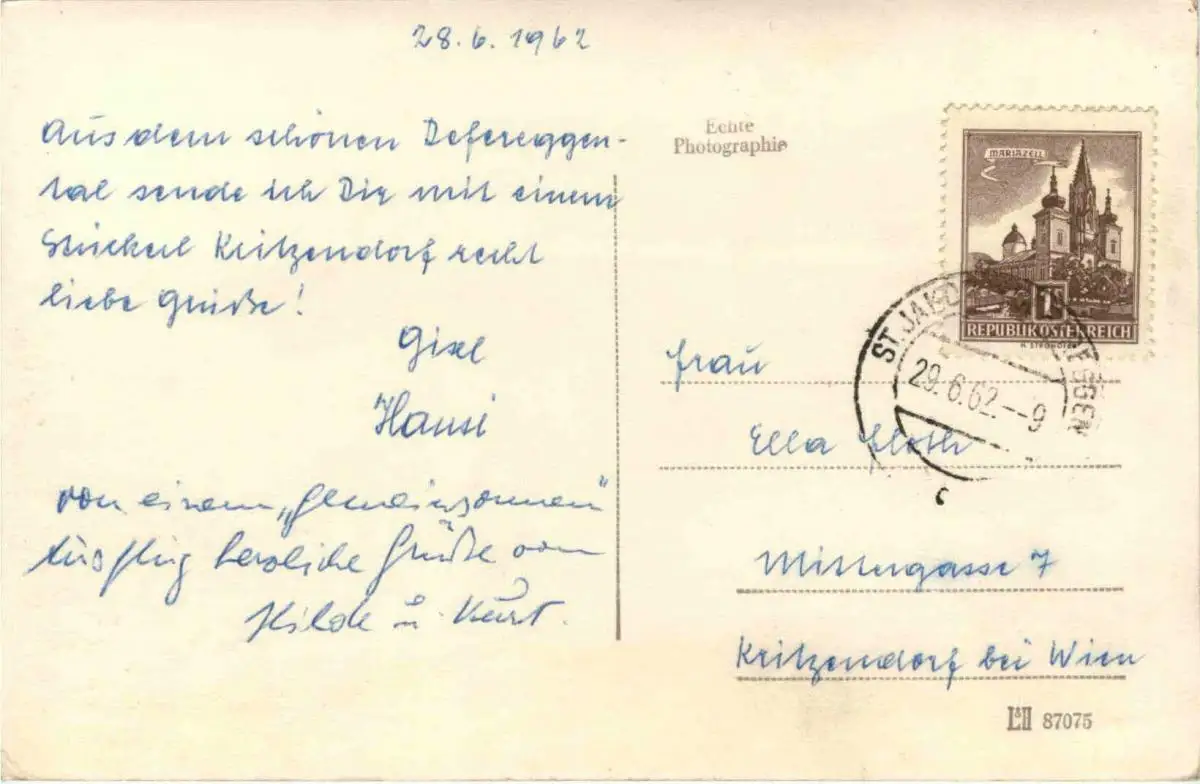 28.6.1962
Aus dem schönen Defereggen-
tal sende ich Dir mit einem
Stückerl Kritzendorf recht
liebe Grüße!
Gisel
Hansi
von einem „gemeinsamen"
Ausflug herzliche Grüße von
Hilde u. Kurt.
Echte
Photographie
MARIAZELL
1S
REPUBLIK ÖSTERREICH
ST. JAKOB
EGGEN
29.6.62.--9
Frau
Ella
Mittergasse 7
Kritzendorf bei Wien
87075